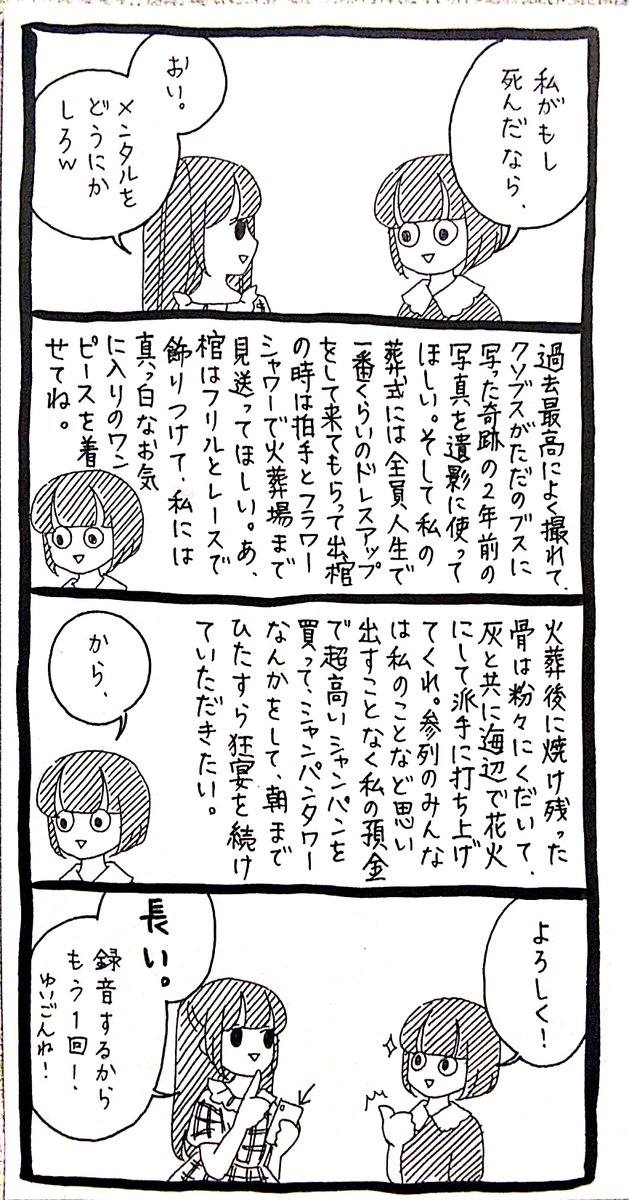 私がもし
死んだなら、
おい。
メンタルを
どうにか
しろw
過去最高によく撮れて、
クソブスがただのブスに
写った奇跡の2年前の
写真を遺影に使って
ほしい。そして私の
葬式には全員人生で
一番くらいのドレスアップ
をして来てもらって出棺
の時は拍手とフラワー
シャワーで火葬場まで
見送ってほしい。あ、
棺はフリルとレースで
飾りつけて、私には
真っ白なお気
に入りのワン
ピースを着
せてね。
火葬後に焼け残った
骨は粉々にくだいて、
灰と共に海辺で花火
にして派手に打ち上げ
てくれ。参列のみんな
は私のことなど思い
出すことなく私の預金
で超高いシャンパンを
買って、シャンパンタワー
なんかをして、朝まで
ひたすら狂宴を続け
ていただきたい。
から、
よろしく!
長い。
録音するから
もう1回!
ゆいごんね!